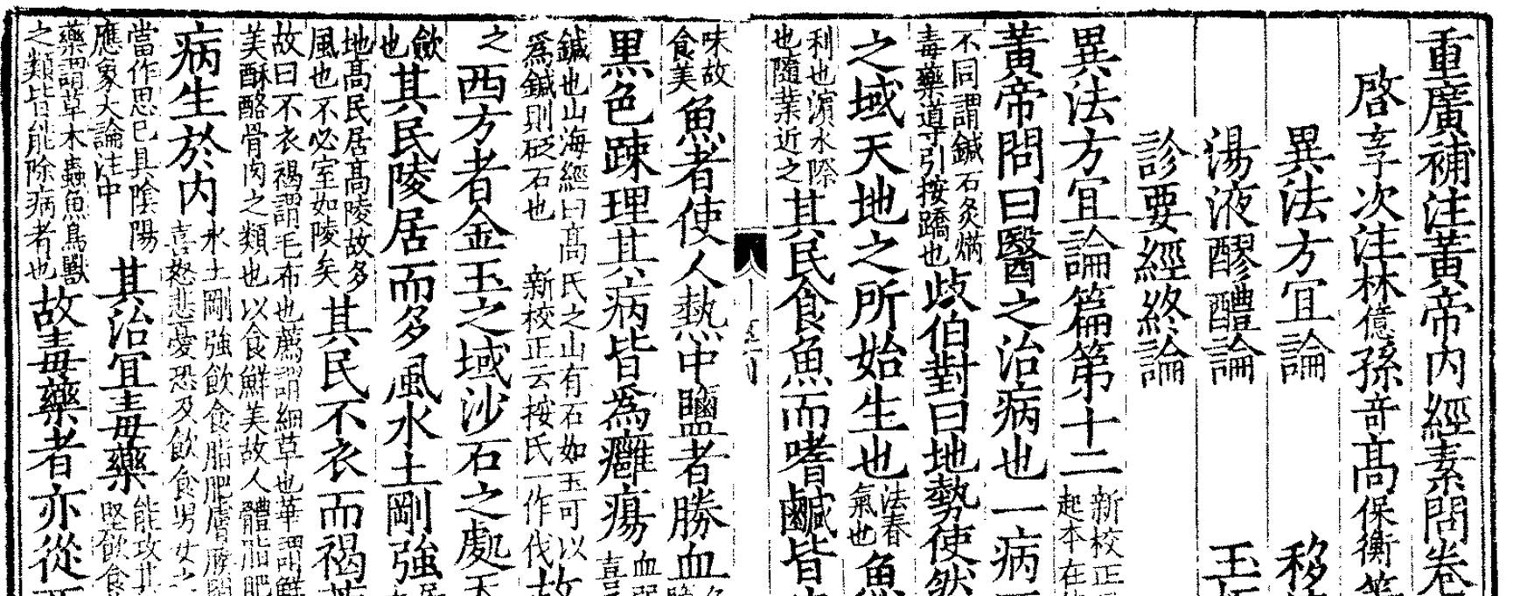 重廣補注黃帝內經素問卷
啓玄子次注林億孫竒高保衡
異法方宜論 移
湯液醪醴論 玉
診要經終論
異法方宜論篇第十二新校正起本在
黃帝問曰醫之治病也一病
不同謂鍼石灸焫毒藥導引按蹻也歧伯對曰地勢使然
之域天地之所始生也法春氣也魚
利也濵水際也隨業近之其民食魚而嗜鹹皆
味故食美魚者使人熱中鹽者勝血
黑色踈理其病皆爲癰瘍血
鍼也山海經曰高氏之山有石如玉可以爲鍼則砭石也 新校正云按氏一作伐故
之西方者金玉之域沙石之處天
飲也其民陵居而多風水土剛強
地高民居高陵故多風也不必室如陵矣其民不衣而褐
故曰不衣褐謂毛布也薦謂細草也華謂鮮美酥酪骨肉之類也以食鮮美故人體脂肥
病生於內水土剛強飲食脂肥膚腠喜怒悲憂恐及飲食男女之
當作思已具陰陽應象大論注中其治宜毒藥能攻其
藥謂草木蟲魚鳥獸之類皆能除病者也故毒藥者亦從